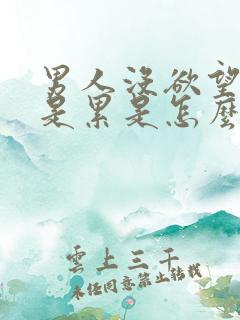 男人没欲望
是累是怎麽
雲上三千
未经同意禁止转载